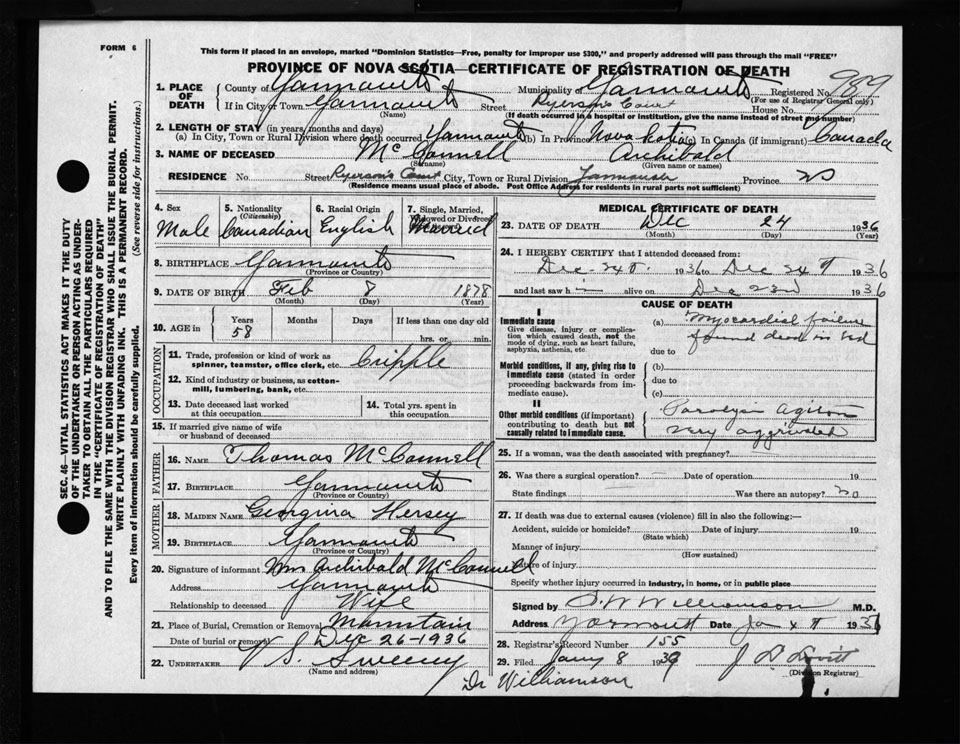 FORM 6
This form if placed in an envelope, marked "Dominion Statistics—Free, penalty for improper use $300," and properly addressed will pass through the mail "FREE"
PROVINCE OF NOVA SCOTIA—CERTIFICATE OF REGISTRATION OF DEATH
989
1. PLACE OF DEATH
County of Yarmouth Municipality of Yarmouth Registered No.
(For use of Registrar General only)
If in City or Town Yarmouth Street Ryerson's Court House No.
(Name) (If death occurred in a hospital or institution, give the name instead of street and number)
2. LENGTH OF STAY (in years, months and days)
(a) In City, Town or Rural Division where death occurred Yarmouth (b) In Province Nova Scotia (c) In Canada (if immigrant) Canada
3. NAME OF DECEASED McConnell Archibald
(Surname) (Given name or names)
RESIDENCE No. Street Ryerson's Court City, Town or Rural Division Yarmouth Province NS
(Residence means usual place of abode. Post Office Address for residents in rural parts not sufficient)
4. Sex Male
5. Nationality (Citizenship) Canadian
6. Racial Origin English
7. Single, Married, Widowed or Divorced Married
8. BIRTHPLACE Yarmouth
(Province or Country)
9. DATE OF BIRTH Feb 8 1878
(Month) (Day) (Year)
10. AGE in Years 58 Months Days If less than one day old
hrs. or min.
OCCUPATION
11. Trade, profession or kind of work as spinner, teamster, office clerk, etc. Cripple
12. Kind of industry or business, as cotton-mill, lumbering, bank, etc.
13. Date deceased last worked at this occupation
14. Total yrs. spent in this occupation
15. If married give name of wife or husband of deceased
FATHER
16. NAME Thomas McConnell
17. BIRTHPLACE Yarmouth
(Province or Country)
MOTHER
18. MAIDEN NAME Georgina Hersey
19. BIRTHPLACE Yarmouth
(Province or Country)
20. Signature of informant Mrs Archibald McConnell
Address Yarmouth
Relationship to deceased Wife
21. Place of Burial, Cremation or Removal Mountain
Date of burial or removal Dec 26-1936
22. UNDERTAKER V S. Sweeny
(Name and address)
Dr Williamson
MEDICAL CERTIFICATE OF DEATH
23. DATE OF DEATH Dec 24 1936
(Month) (Day) (Year)
24. I HEREBY CERTIFY that I attended deceased from:
Dec. 24th 1936 to Dec 24th 1936
and last saw h i alive on Dec 23rd 1936
CAUSE OF DEATH
I
Immediate cause
Give disease, injury or complication which caused death, not the mode of dying, such as heart failure, asphyxia, asthenia, etc.
(a) Myocardial failure
found dead in bed
due to
Morbid conditions, if any, giving rise to immediate cause (stated in order proceeding backwards from immediate cause).
(b)
due to
(c)
II
Other morbid conditions (if important) contributing to death but not causally related to immediate cause.
Paralysis Agitans
very aggrivated
25. If a woman, was the death associated with pregnancy?
26. Was there a surgical operation? — Date of operation 19
State findings Was there an autopsy? no
27. If death was due to external causes (violence) fill in also the following:—
Accident, suicide or homicide? Date of injury 19
(State which)
Manner of injury
(How sustained)
Nature of injury
Specify whether injury occurred in industry, in home, or in public place
Signed by S. W Williamson M.D.
Address Yarmouth Date Jan
28. Registrar's Record Number 155
29. Filed Jany 8 19
(Division Registrar)
SEC. 46—VITAL STATISTICS ACT MAKES IT THE DUTY
OF THE UNDERTAKER OR PERSON ACTING AS UNDER-
TAKER TO OBTAIN ALL THE PARTICULARS REQUIRED
IN THE "CERTIFICATE OF REGISTRATION OF DEATH"
AND TO FILE THE SAME WITH THE DIVISION REGISTRAR WHO SHALL ISSUE THE BURIAL PERMIT.
WRITE PLAINLY WITH UNFADING INK. THIS IS A PERMANENT RECORD.
Every item of information should be carefully supplied. (See reverse side for instructions.)